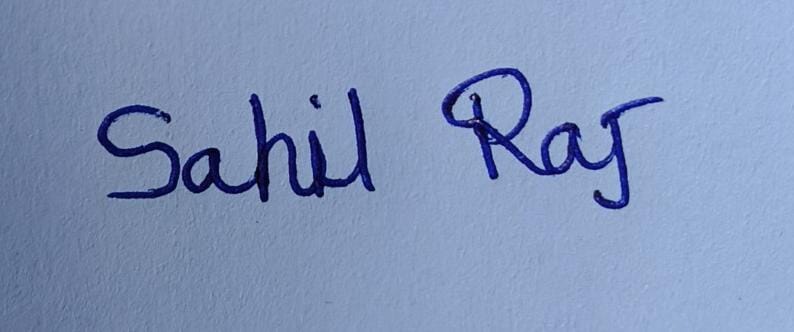 Sahil Raj